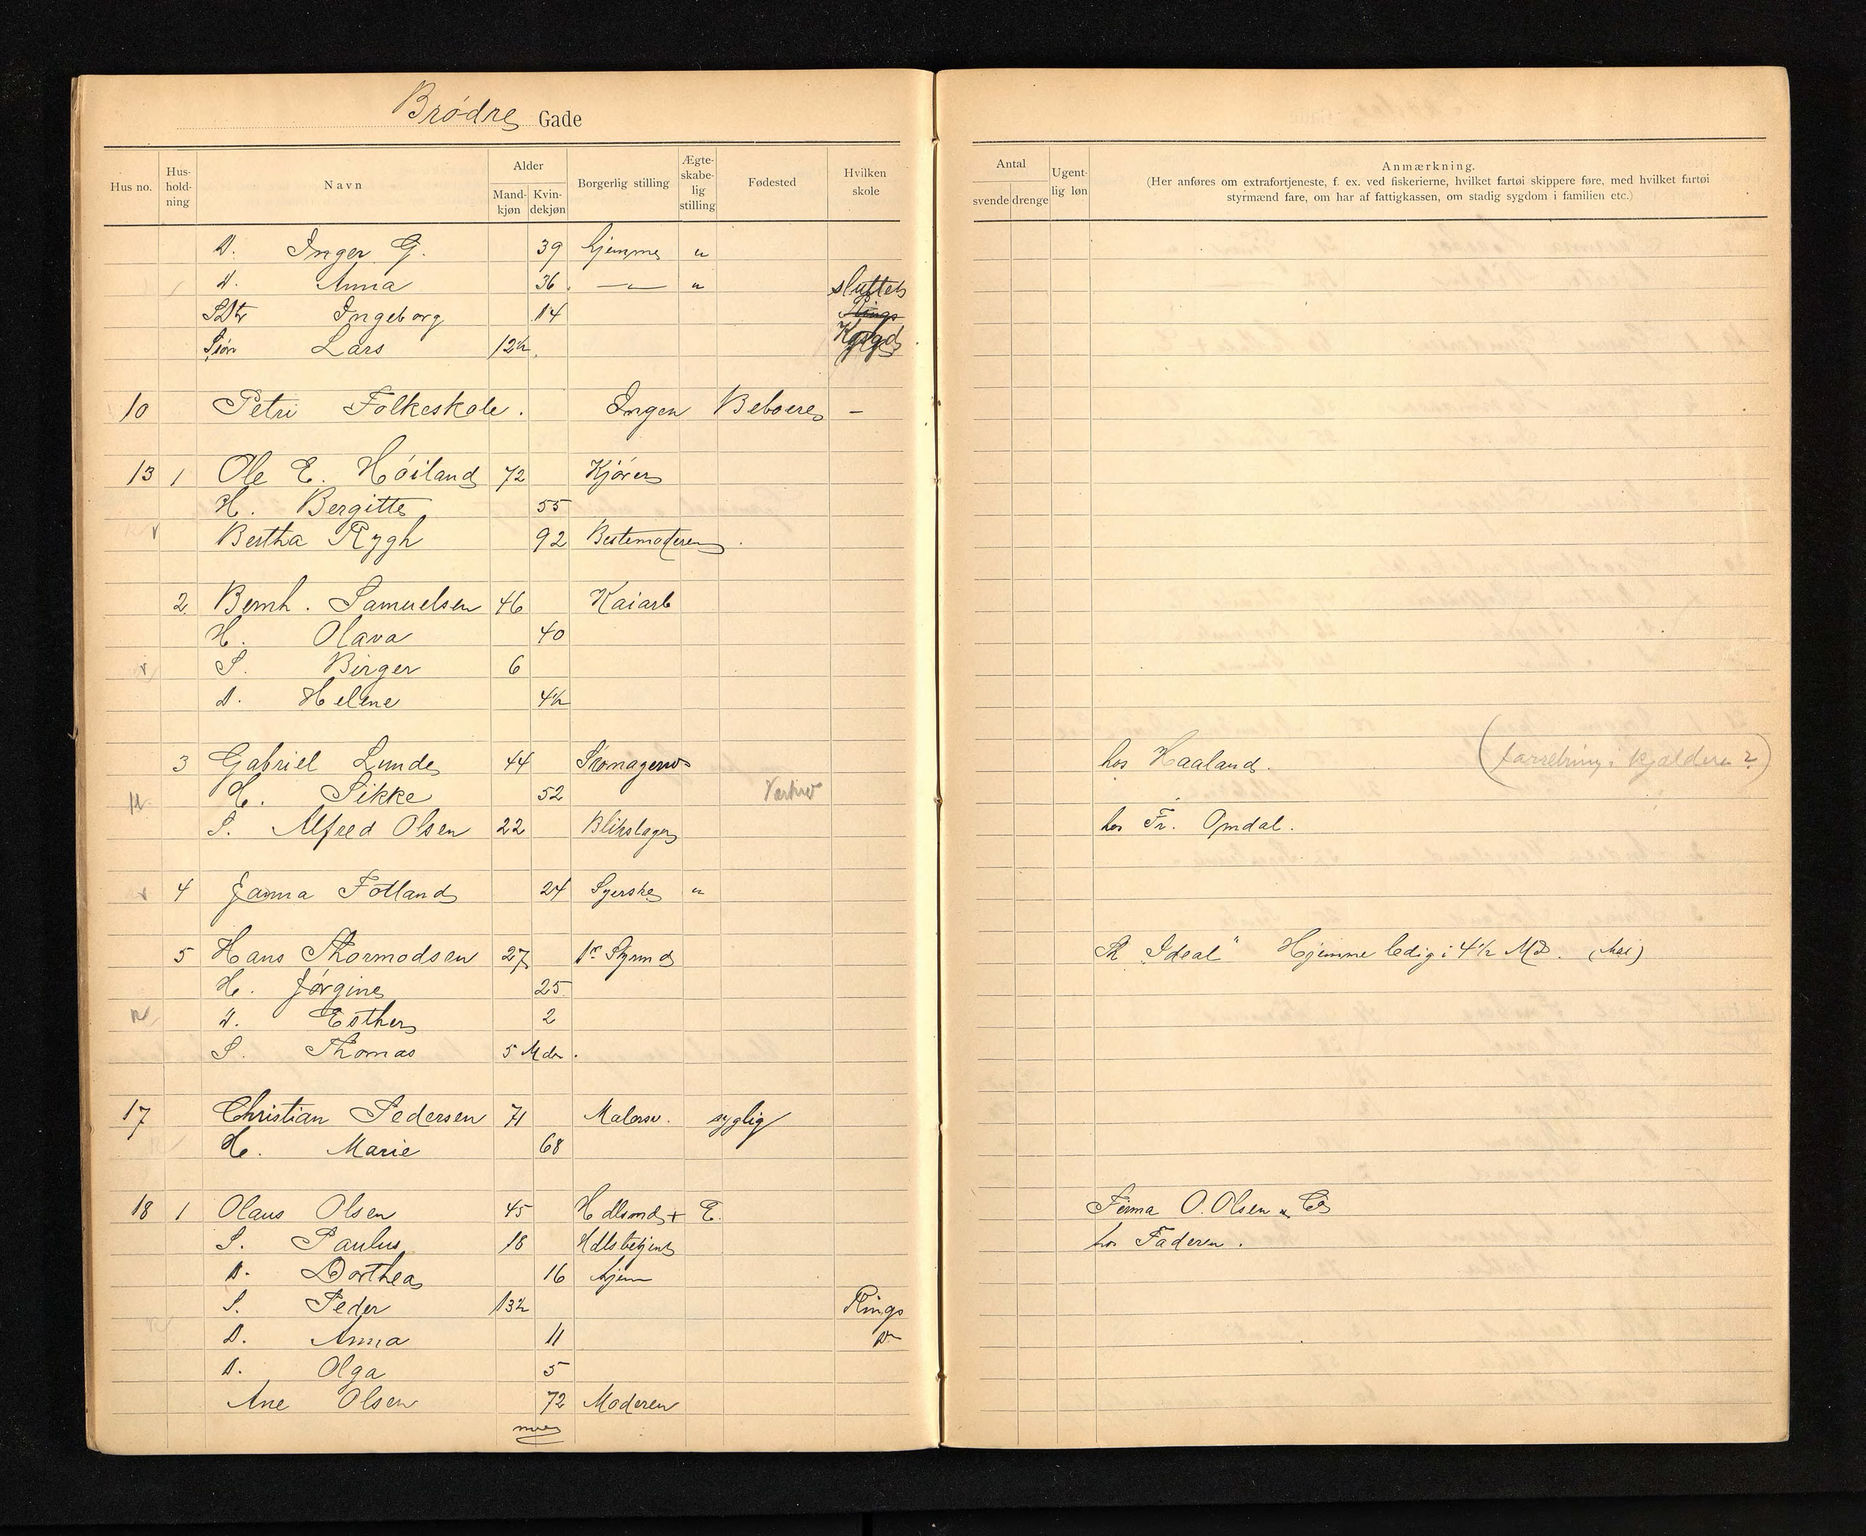 Brødre Gade
Hus no. Hus-hold-ning Navn Alder Mand-kjøn Kvin-dekjøn Borgerlig stilling Ægte-skabe-lig stilling Fødested Hvilken skole
Antal svende drenge Ugent-lig løn Anmærkning.
(Her anføres om extrafortjeneste, f. ex. ved fiskerierne, hvilket fartøi skippere føre, med hvilket fartøi
styrmænd fare, om har af fattigkassen, om stadig sygdom i familien etc.)
D. Inger G. 39 hjemme "
D. Anna 36 — " — " sluttet
SDtr Ingeborg 14 Kings
Søn Lars 12½
10 Petri Folkeskole. Ingen Beboere —
13 1 Ole E. Høiland 72 Kjører
H. Bergitte 55
Bertha Rygh 92 Bestemoderen
2 Bernh. Samuelsen 46 Kaiarb
H. Olava 40
S. Birger 6
D. Helene 4½
3 Gabriel Lunde 44 Skomagersv hos Haaland. (forretning i kjælderen?)
H. Sikke 52
S. Alfred Olsen 22 Blikslager hos Fr. Omdal.
4 Janna Fotland 24 Syerske "
5 Hans Thormodsen 27 1r Styrmd "Ideal" Hjemme ledig i 4½ MD. (Mai)
H. Jørgine 25
D. Esther 2
S. Thomas 5 Mdr.
17 Christian Pedersen 71 Malersv. syglig
H. Marie 68
18 1 Olaus Olsen 45 Hdlsmd + E. Firma O. Olsen & Co
S. Paulus 18 Hdlsbetjent hos Faderen.
D. Dorthea 16 hjem
S. Peder 13½ Kings
D. Anna 11 D
D. Olga 5
Ane Olsen 72 Moderen